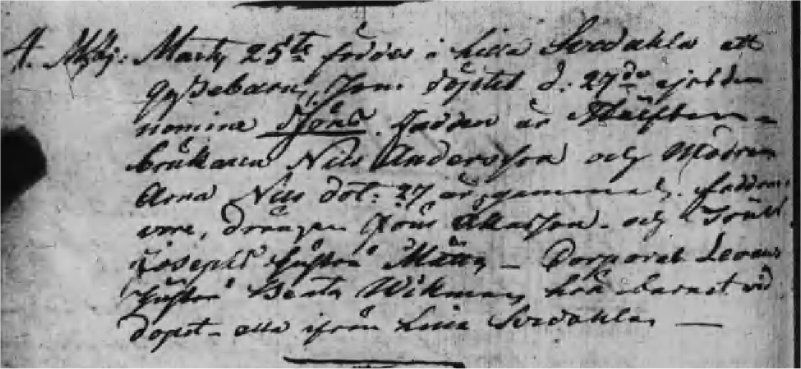 4. Marty 25te föddes i Lilla Svedahla ett
gossebarn, som döptes d. 27de ejusdem
nomine Jöns. Fadren är
brukaren Nils Andersson och Modren
Anna Nils dot: 27 år gammal. Faddrar
vore, drängen Jöns Åkasson och
Josephs hustru Märta – Corporal
hustru Benta Wikman, höll barnet vid
dopet – alla ifrån Lilla Svedahla. –